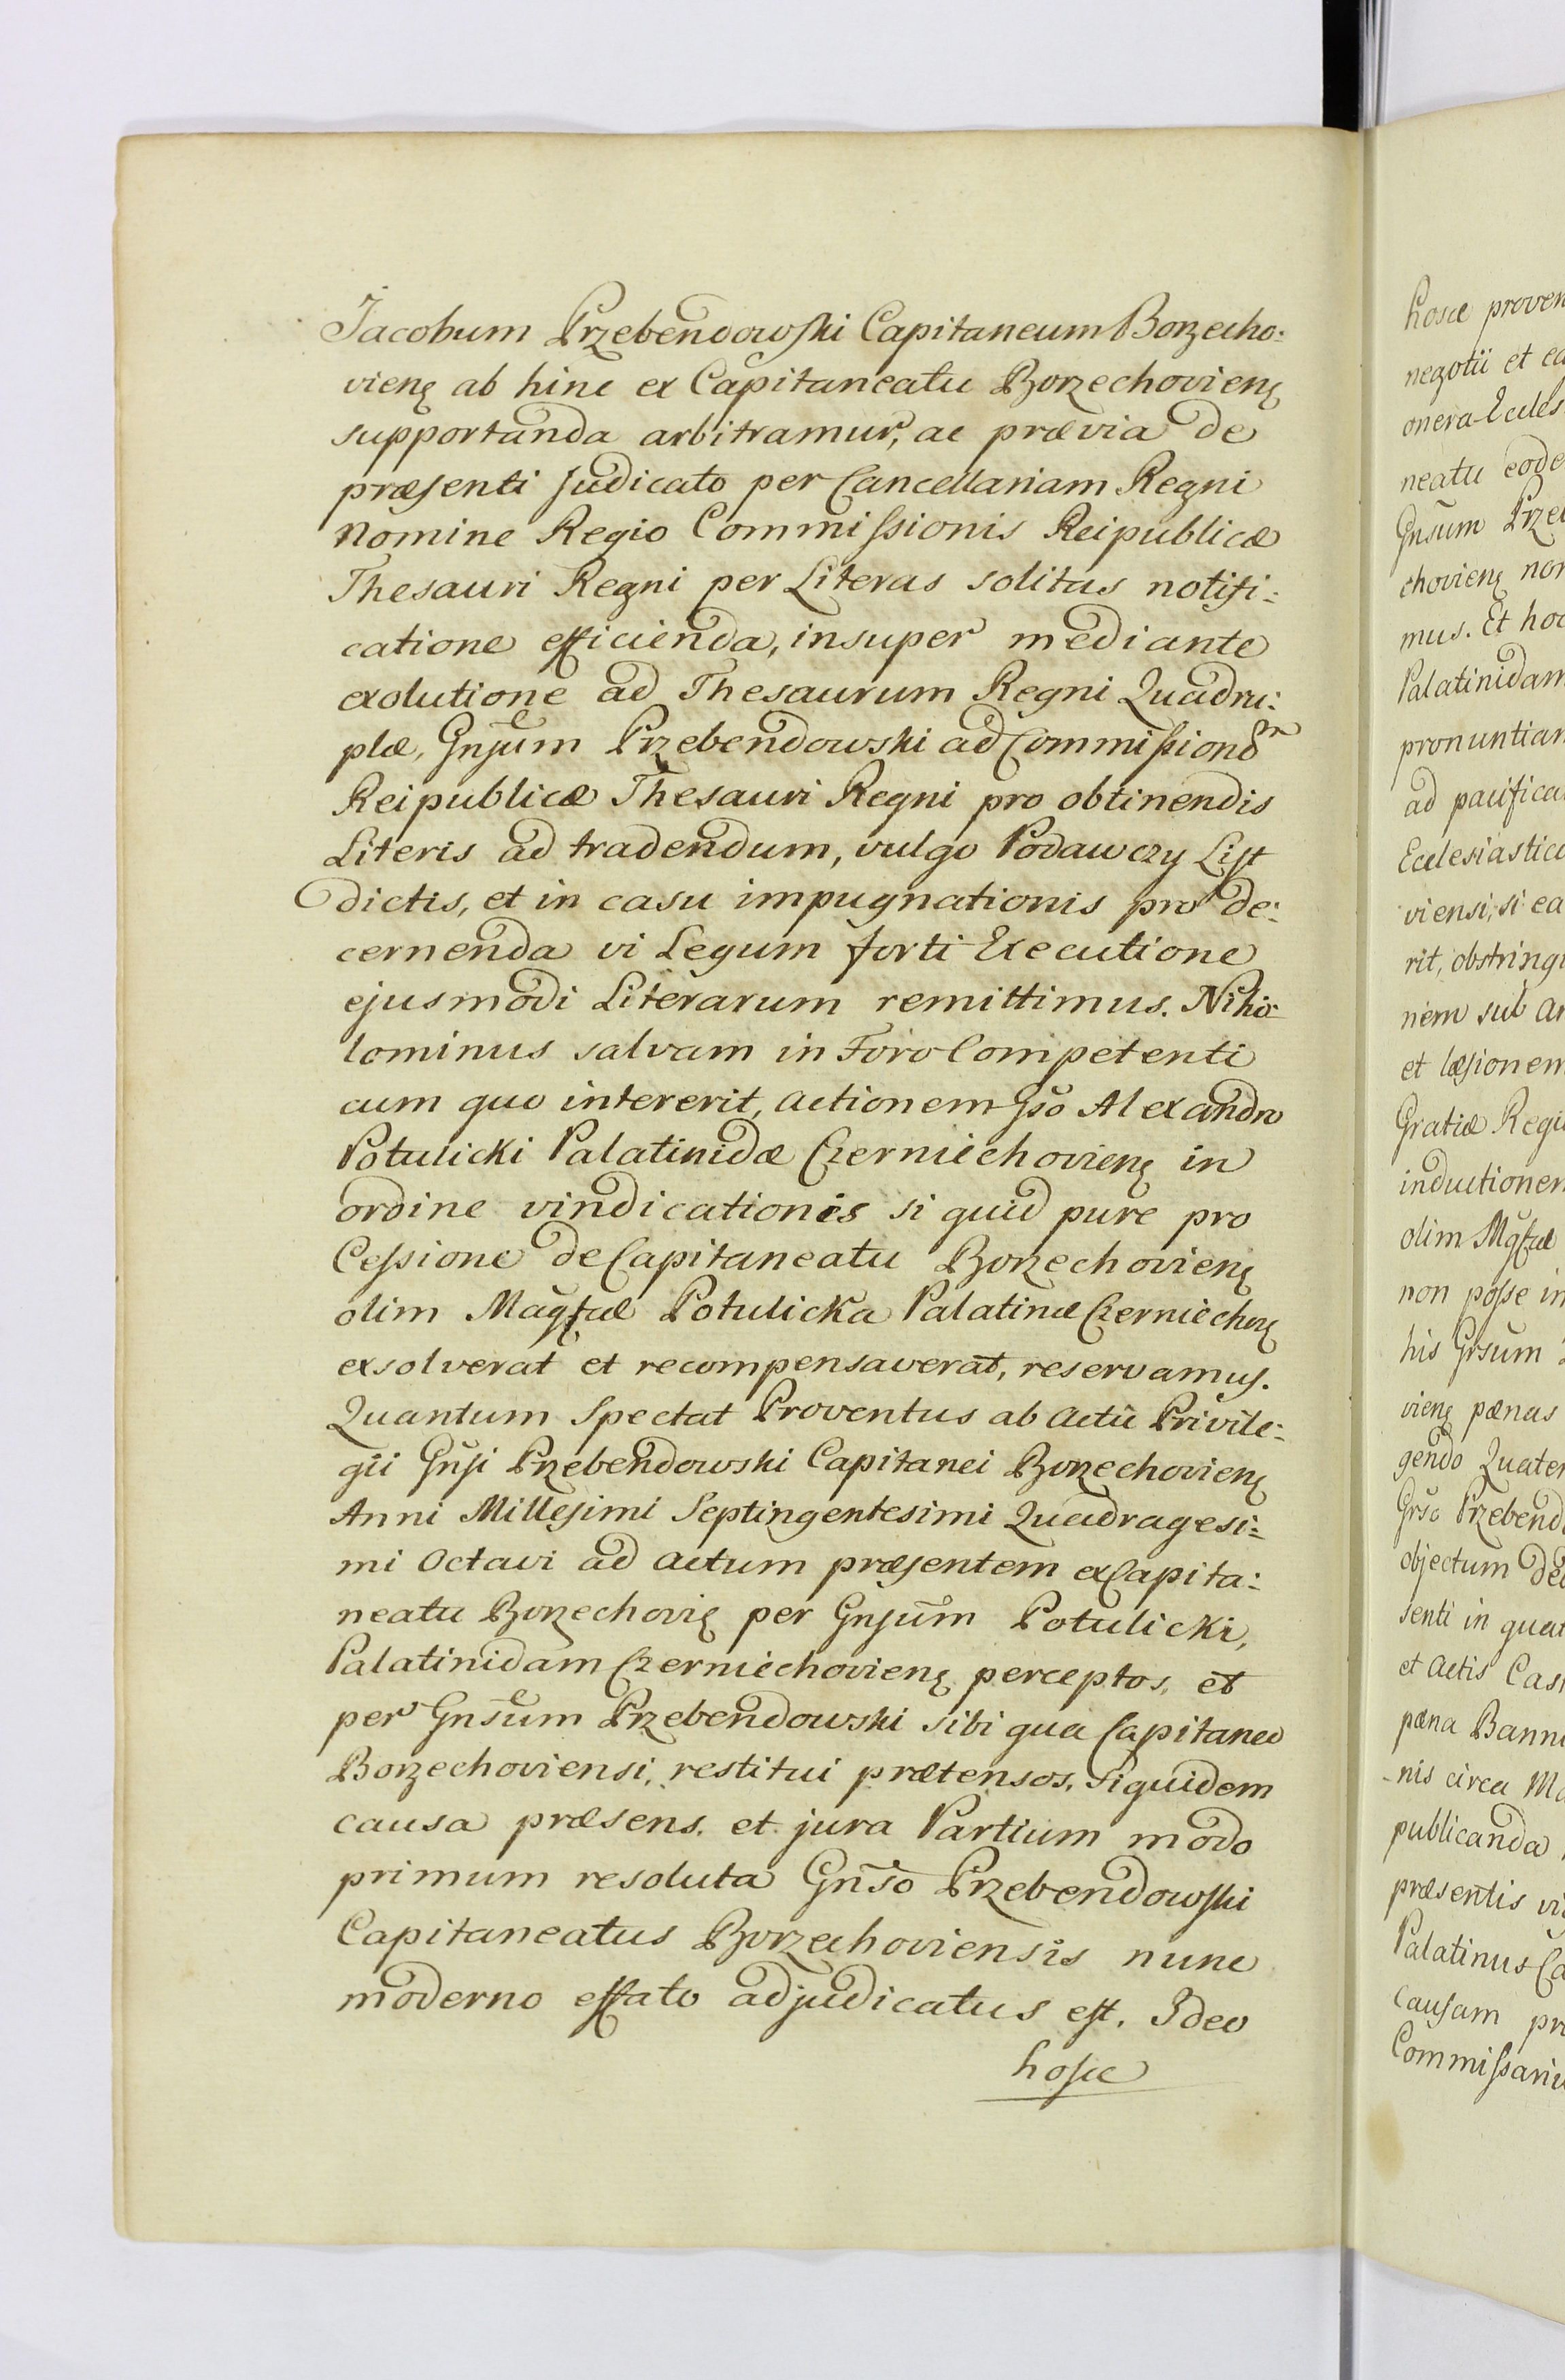 Jacobum Przebendowski Capitaneum Borzecho:
vienę ab hinc ex Capitaneatu Borzechovienę
supportanda arbitramur, ac prævia de
præsenti Judicato per Cancellariam Regni
Nomine Regio Commissionis Reipublicæ
Thesauri Regni per Literas solitas notifi:
catione efficienda, insuper mediante
exolutione ad Thesaurum Regni Quadru:
plæ, Gnsum Przebendowski ad Commissionem
Reipublicæ Thesauri Regni pro obtinendis
Literis ad tradendum, vulgo Podawczy List
dictis, et in casu impugnationis pro de:
cernenda vi Legum forti Executione
ejusmodi Literarum remittimus. Nihi:
lominus salvam in Foro Competenti
cum quo intererit, actionem Gso Alexandro
Potulicki Palatinidæ Czerniechovienę in
ordine vindicationis si quid pure pro
Cessione de Capitaneatu Borzechovienę
olim Magfcæ Potulicka Palatinæ Czerniechovę
exsolverat et recompensaverat, reservamus.
Quantum Spectat Proventus ab actu Privile:
gii Gnsi Przebendowski Capitanei Borzechovienę
Anni Millesimi Septingentesimi Quadragesi:
mi Octavi ad actum præsentem ex Capita:
neatu Borzechovię per Gnsum Potulicki,
Palatinidam Czerniechovienę perceptos, et
per Gnsum Przebendowski sibi qua Capitaneo
Borzechoviensi, restitui prætensos, siquidem
causa præsens. et jura Partium modo
primum resoluta Gnso Przebendowski
Capitaneatus Borzechoviensis nunc
moderno effato adjudicatus est. Ideo
hosce
hosce proven
negotii et ea
onera Eccles
neatu eode
Gnsum Prze
chovienę non
mus. Et hoc
Palatinidam
pronuntiam
ad pacifica
Ecclesiastic
viensi, si ea
rit, obstringi
nem sub a
et læsionem
Gratiæ Regi
inductionem
olim Mgfcæ
non posse in
his Gnsum
vienę pænas
gendo Quaten
Gnso Przebend
objectum de
senti in qua
et actis Cas
pæna Banni
nis circa M
publicanda
præsentis vi
Palatinus Ca
causam pr
Commissari